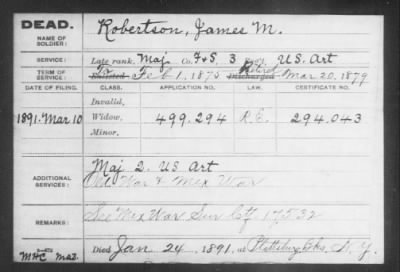 DEAD.
NAME OF SOLDIER: Robertson, James M.
SERVICE: Late rank, Maj Co. F&S. 3 Reg't. U.S. Art
TERM OF SERVICE: To Enlisted Feb 1, 1875 Retired Discharged Mar 20, 1879
DATE OF FILING. CLASS. APPLICATION NO. LAW. CERTIFICATE NO.
Invalid,
1891. Mar 10 Widow, 499.294 R.E. 294.043
Minor,
ADDITIONAL SERVICES: Maj 2. US Art
Old War & Mex War
REMARKS: See Mex War Sur Ctf 17532
Died Jan 24, 1891, at Plattsburg Bks, N.Y.